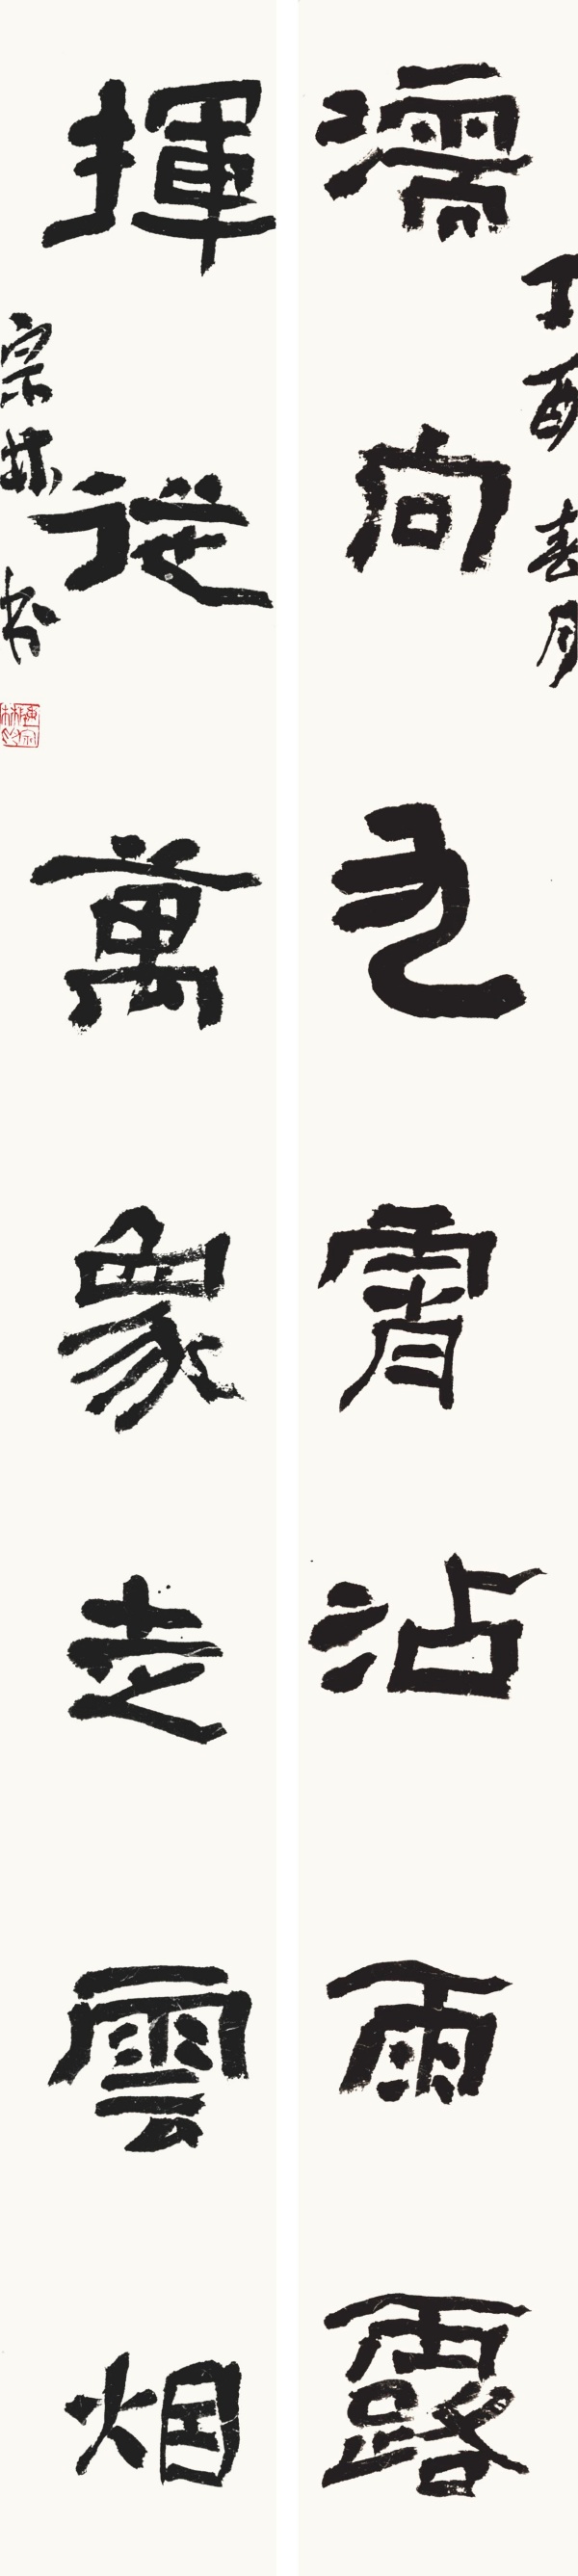 丁酉春月
濡向九霄沾雨露
揮從萬象走雲烟
宗林书